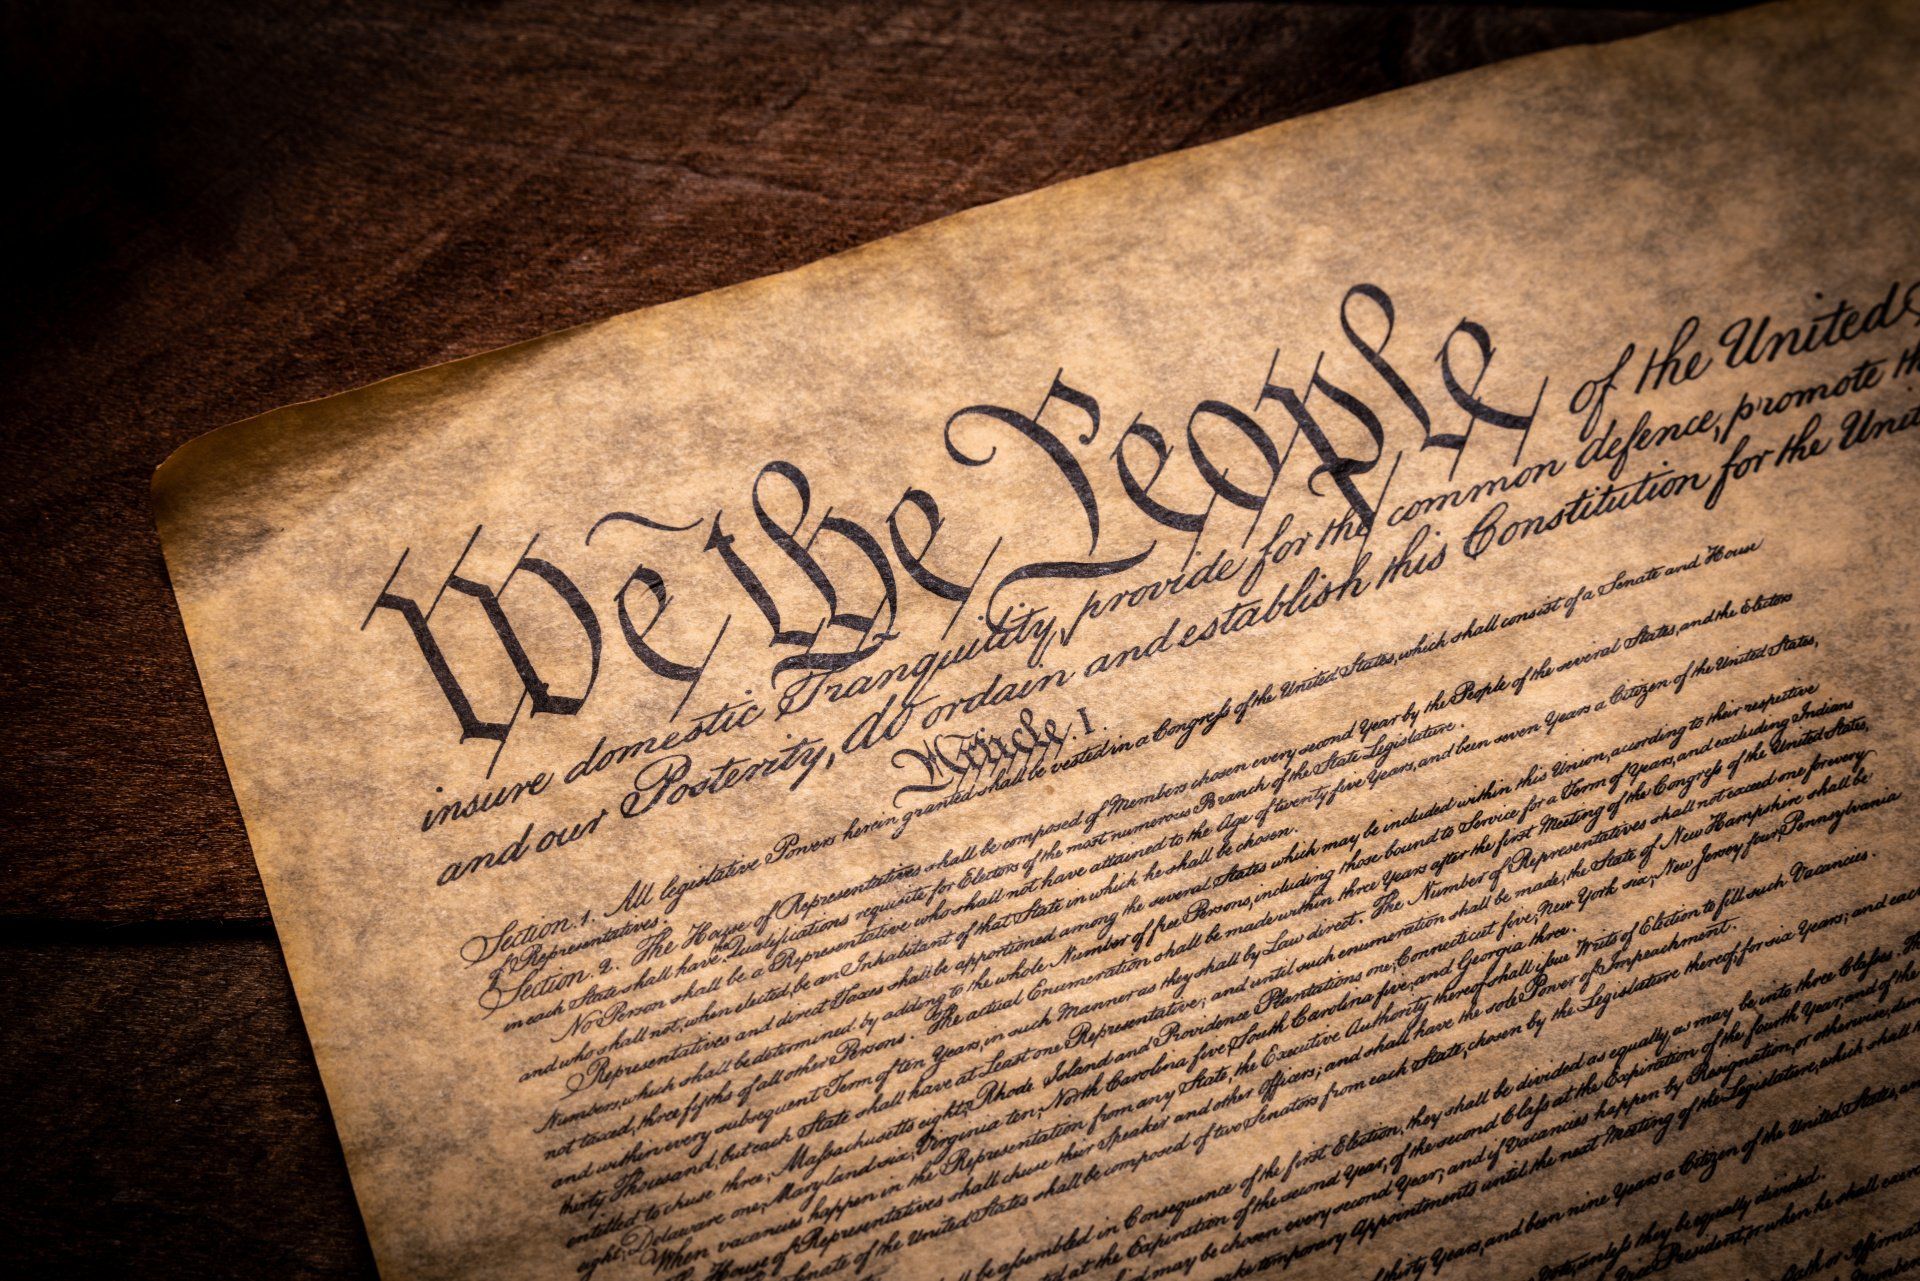 We the People of the United S
insure domestic Tranquility, provide for the common defence, promote th
and our Posterity, do ordain and establish this Constitution for the Unit
Article. I.
Section. 1. All legislative Powers herein granted shall be vested in a Congress of the United States, which shall consist of a Senate and House
of Representatives.
Section. 2. The House of Representatives shall be composed of Members chosen every second Year by the People of the several States, and the Electors
in each State shall have the Qualifications requisite for Electors of the most numerous Branch of the State Legislature.
No Person shall be a Representative who shall not have attained to the Age of twenty five Years, and been seven Years a Citizen of the United States,
and who shall not, when elected, be an Inhabitant of that State in which he shall be chosen.
Representatives and direct Taxes shall be apportioned among the several States which may be included within this Union, according to their respective
Numbers, which shall be determined by adding to the whole Number of free Persons, including those bound to Service for a Term of Years, and excluding Indians
not taxed, three fifths of all other Persons. The actual Enumeration shall be made within three Years after the first Meeting of the Congress of the United States,
and within every subsequent Term of ten Years, in such Manner as they shall by Law direct. The Number of Representatives shall not exceed one for every
thirty Thousand, but each State shall have at Least one Representative; and until such enumeration shall be made, the State of New Hampshire shall be
entitled to chuse three, Massachusetts eight, Rhode Island and Providence Plantations one, Connecticut five, New York six, New Jersey four, Pennsylvania
eight, Delaware one, Maryland six, Virginia ten, North Carolina five, South Carolina five, and Georgia three.
When vacancies happen in the Representation from any State, the Executive Authority thereof shall issue Writs of Election to fill such Vacancies.
House of Representatives shall chuse their Speaker and other Officers; and shall have the sole Power of Impeachment.
Senate of the United States shall be composed of two Senators from each State, chosen by the Legislature thereof, for six Years; and each
be assembled in Consequence of the first Election, they shall be divided as equally as may be into three Classes. Th
at the Expiration of the second Year, of the second Class at the Expiration of the fourth Year, and of the
may be chosen every second Year; and if Vacancies happen by Resignation, or otherwise, dur
make temporary Appointments until the next Meeting of the Legislature, which shall
thirty Years, and been nine Years a Citizen of the United States, an
Vote, unless they be equally divided.
President, or when he shall exerc
Oath or Affirmat